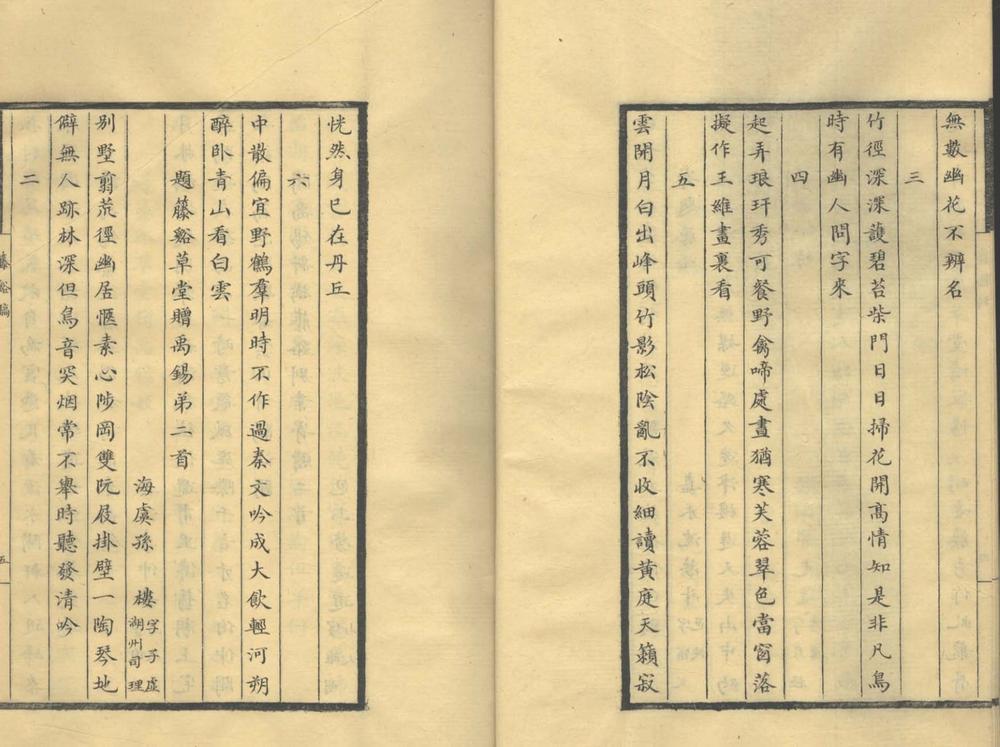 無數幽花不辨名
三
竹徑深深護碧苔柴門日日掃花開高情知是非凡鳥
時有幽人問字來
四
起弄琅玕秀可餐野禽啼處晝猶寒芙蓉翠色當窗落
擬作王維畫裏看
五
雲開月白出峰頭竹影松陰亂不收細讀黄庭天籟寂
恍然身已在丹丘
六
中散偏宜野鶴羣明時不作過秦文吟成大飲輕河朔
醉卧青山看白雲
題藤谿草堂贈禹錫弟二首
海虞孫樓字子虚湖州司理
别墅翦荒徑幽居愜素心陟岡雙阮屐掛壁一陶琴地
僻無人跡林深但鳥音突烟常不舉時聽發清吟
二
藤谿稿
五